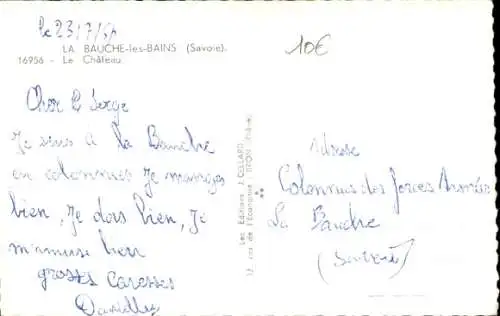 le 23/7/
LA BAUCHE-les-BAINS (Savoie).
16956 - Le Château
10€
Cher Serge
Je suis à la Bauche
en colonnies Je manges
bien, Je dors bien, Je
m'amuse bien
grosses Caresses
Les Editions J. CELLARD
17, rue de l'Economie - BRON (Rhône)
Adresse
Colonnies des forces Armées
La Bauche
(Savoie)